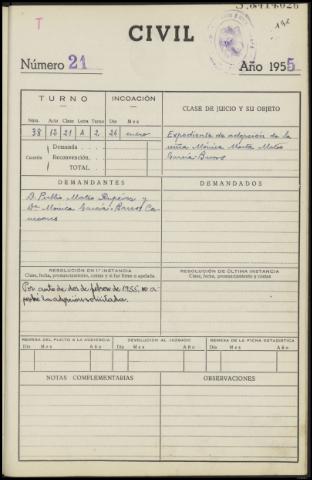 T
CIVIL
Número 21
Año 1955
TURNO
INCOACIÓN
CLASE DE JUICIO Y SU OBJETO
Núm. Acto Clase Letra Turno Día Mes
38 12 21 A 2 24 enero
Expediente de adopción de la
niña Mónica Marta Mateo
García-Barros
Cuantía
Demanda
Reconvención
TOTAL
DEMANDANTES
DEMANDADOS
D. Pablo Mateo Rupérez y
Dª Mónica García-Barros
RESOLUCIÓN EN 1ª INSTANCIA
Clase, fecha, pronunciamiento, costas y si fue firme o apelada
RESOLUCIÓN DE ÚLTIMA INSTANCIA
Clase, fecha, pronunciamiento, costas
Por auto de dos de febrero de 1955, se a
probó la adopción solicitada.
REMESA DEL PLEITO A LA AUDIENCIA
DEVOLUCIÓN AL JUZGADO
REMESA DE LA FICHA ESTADÍSTICA
Día Mes Año
Día Mes Año
Día Mes Año
NOTAS COMPLEMENTARIAS
OBSERVACIONES